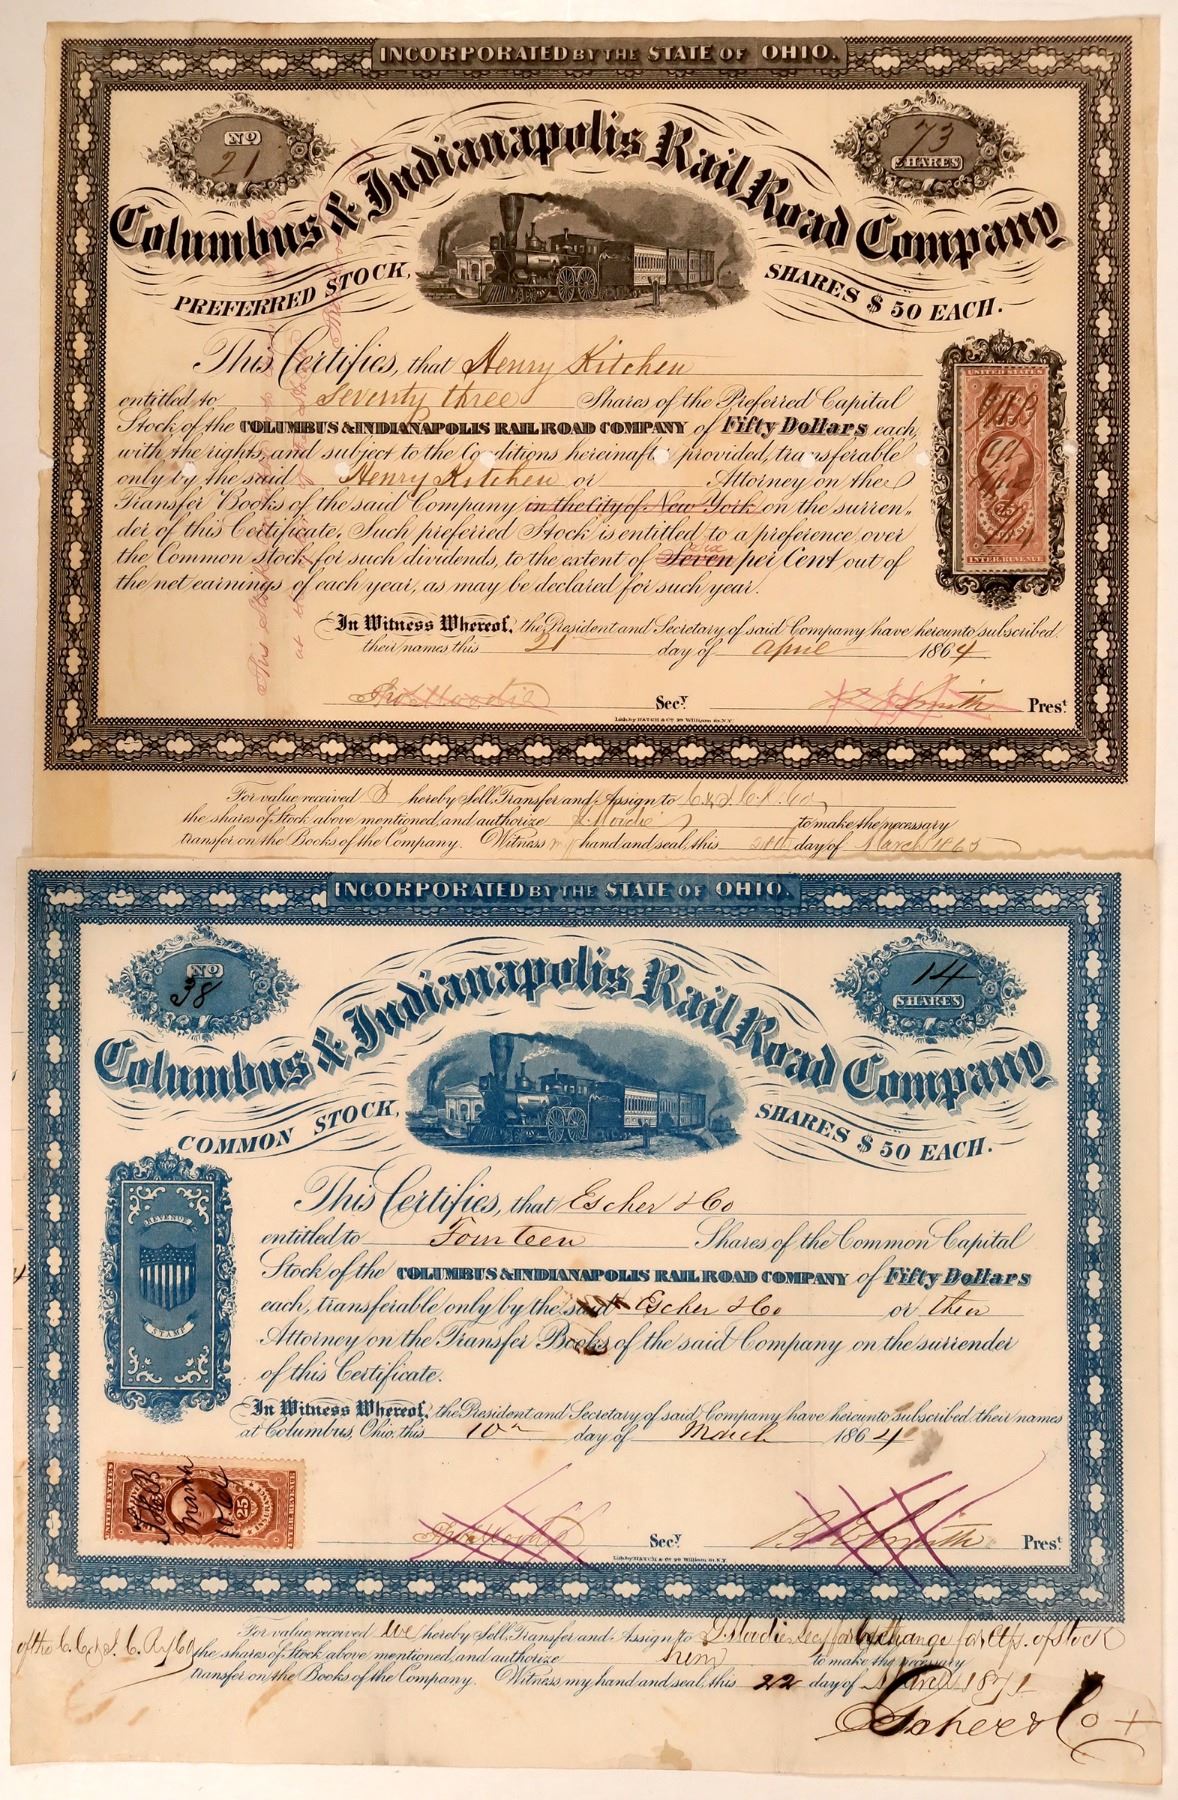 INCORPORATED BY THE STATE OF OHIO.
No 21
73 SHARES
Columbus & Indianapolis Rail Road Company
PREFERRED STOCK, SHARES $50 EACH.
This Certifies, that Henry Kitchen
entitled to Seventy three Shares of the Preferred Capital
Stock of the COLUMBUS & INDIANAPOLIS RAIL ROAD COMPANY of Fifty Dollars each,
with the rights, and subject to the Conditions hereinafter provided, transferable
only by the said Henry Kitchen or Attorney on the
Transfer Books of the said Company in the City of New York on the surren-
der of this Certificate. Such preferred Stock is entitled to a preference over
the Common stock, for such dividends, to the extent of Seven per Cent out of
the net earnings of each year, as may be declared for such year.
In Witness Whereof, the President and Secretary of said Company have hereunto subscribed
their names this 21 day of April 1864
UNITED STATES
25
INTER. REVENUE
Secy. B. E. Smith Prest.
Lith. by HATCH & Co 29 William St. N.Y.
For value received I hereby Sell, Transfer and Assign to
the shares of Stock above mentioned, and authorize to make the necessary
transfer on the Books of the Company. Witness my hand and seal, this day of March 1865
INCORPORATED BY THE STATE OF OHIO.
No 38
14 SHARES
Columbus & Indianapolis Rail Road Company
COMMON STOCK, SHARES $50 EACH.
REVENUE
STAMP
This Certifies, that Escher & Co
entitled to Fourteen Shares of the Common Capital
Stock of the COLUMBUS & INDIANAPOLIS RAIL ROAD COMPANY of Fifty Dollars
each, transferable only by the said Escher & Co or their
Attorney on the Transfer Books of the said Company on the surrender
of this Certificate.
In Witness Whereof, the President and Secretary of said Company have hereunto subscribed their names
at Columbus, Ohio, this 10th day of March 1864
25
INTER. REVENUE
Secy. B. E. Smith Prest.
Lith. by HATCH & Co 29 William St. N.Y.
For value received we hereby Sell, Transfer and Assign to Moodie Secy for Exchange for Ctfs. of Stock
of the C. C. & I. C. Ry Co the shares of Stock above mentioned, and authorize him to make the necessary
transfer on the Books of the Company. Witness my hand and seal, this 22 day of March 1871
Escher & Co